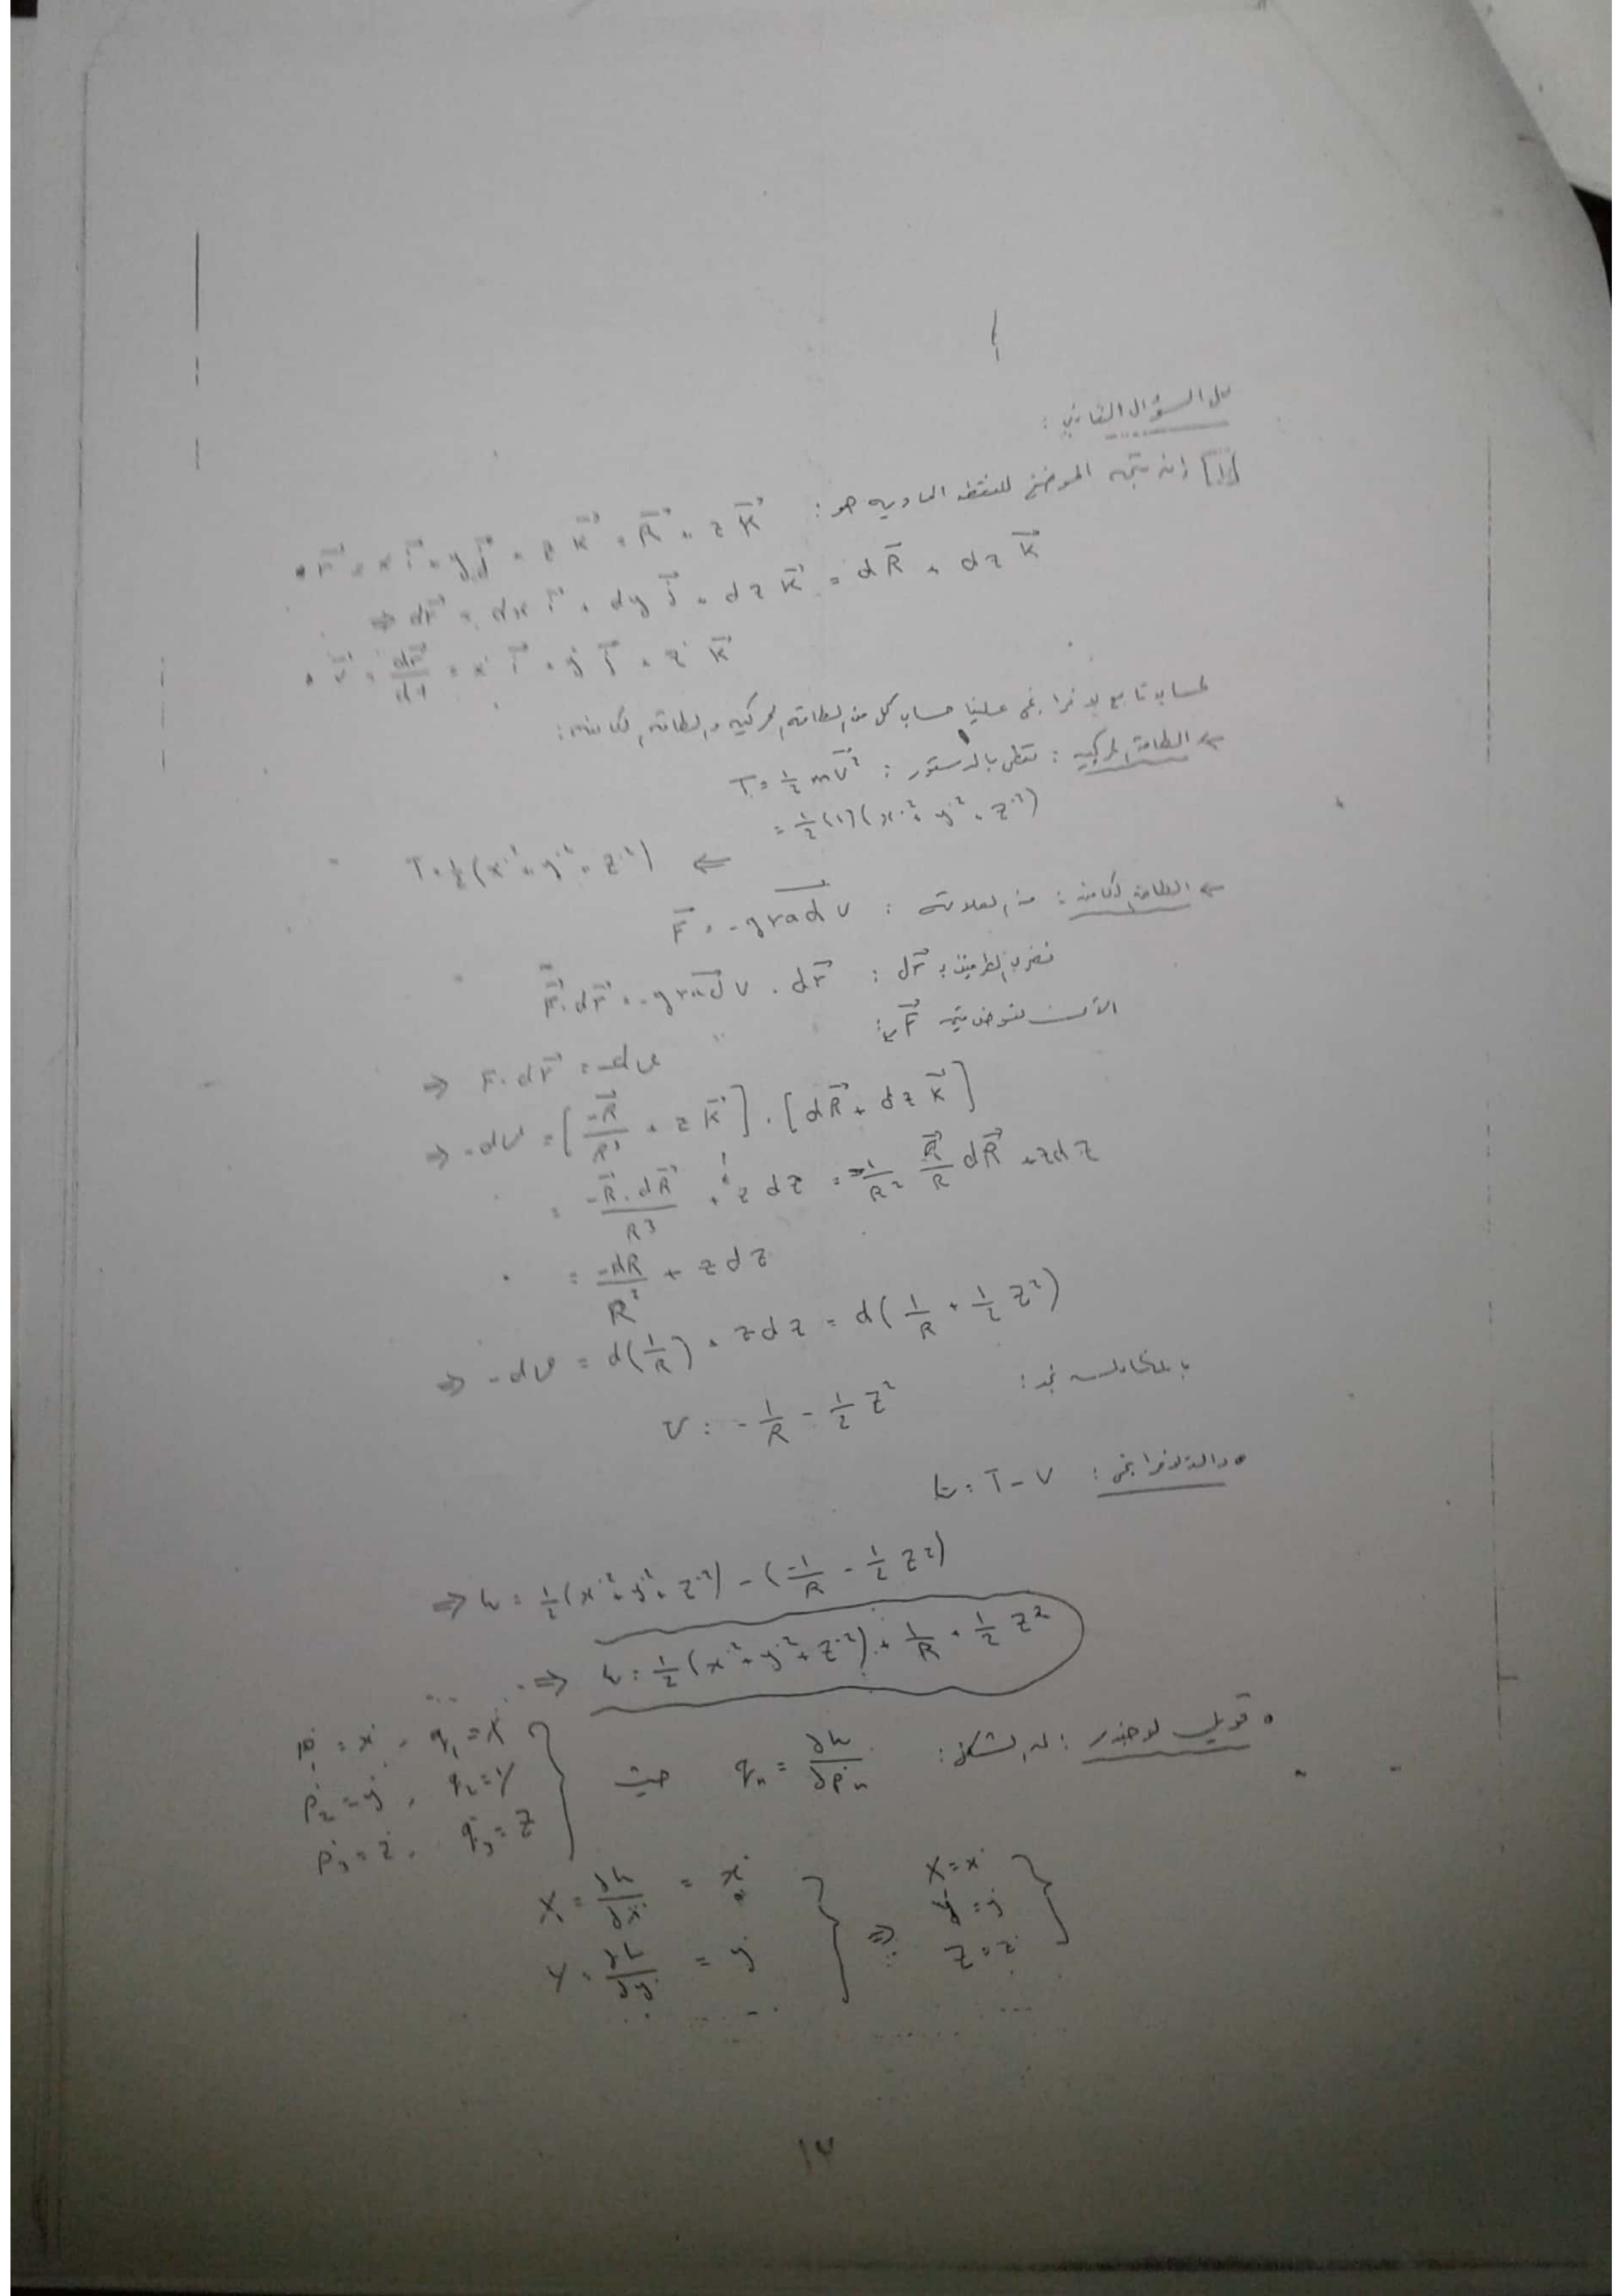 حل السؤال الثاني :
[1] إن متجه الموضع للنقطة المادية هو :
• r⃗ = x i⃗ + y j⃗ + z k⃗ = R⃗ + z k⃗
⇒ dr⃗ = dx i⃗ + dy j⃗ + dz k⃗ = dR⃗ + dz k⃗
• v⃗ = dr⃗/dt = ẋ i⃗ + ẏ j⃗ + ż k⃗
لحساب تابع لاغرانجي علينا حساب كل من الطاقة الحركية والطاقة الكامنة :
← الطاقة الحركية : تعطى بالدستور : T = ½ m v⃗²
= ½ (1) (ẋ² + ẏ² + ż²)
T = ½ (ẋ² + ẏ² + ż²) ⇐
← الطاقة الكامنة : من العلاقة : F⃗ = - grad V
نضرب الطرفين بـ dr⃗ : F⃗ . dr⃗ = - grad V . dr⃗
الآن نعوض قيمة F⃗ :
⇒ F . dr⃗ = - dV
⇒ - dV = [ -R⃗/R³ + z k⃗ ] . [ dR⃗ + dz k⃗ ]
= -R⃗ . dR⃗/R³ + z dz = -1/R² R⃗/R dR⃗ + z dz
= -dR/R² + z dz
⇒ - dV = d(1/R) + z dz = d(1/R + ½ z²)
بالمكاملة نجد :
V = - 1/R - ½ z²
• دالة لاغرانجي : L = T - V
⇒ L = ½ (ẋ² + ẏ² + ż²) - (-1/R - ½ z²)
⇒ L = ½ (ẋ² + ẏ² + ż²) + 1/R + ½ z²
• تحويل لوجندر : له الشكل : qₙ = ∂L/∂ṗₙ حيث
ṗ₁ = ẋ , q₁ = X
ṗ₂ = ẏ , q₂ = Y
ṗ₃ = ż , q₃ = Z
X = ∂L/∂ẋ = ẋ
Y = ∂L/∂ẏ = ẏ
⇒ X = ẋ
Y = ẏ
Z = ż
١٧